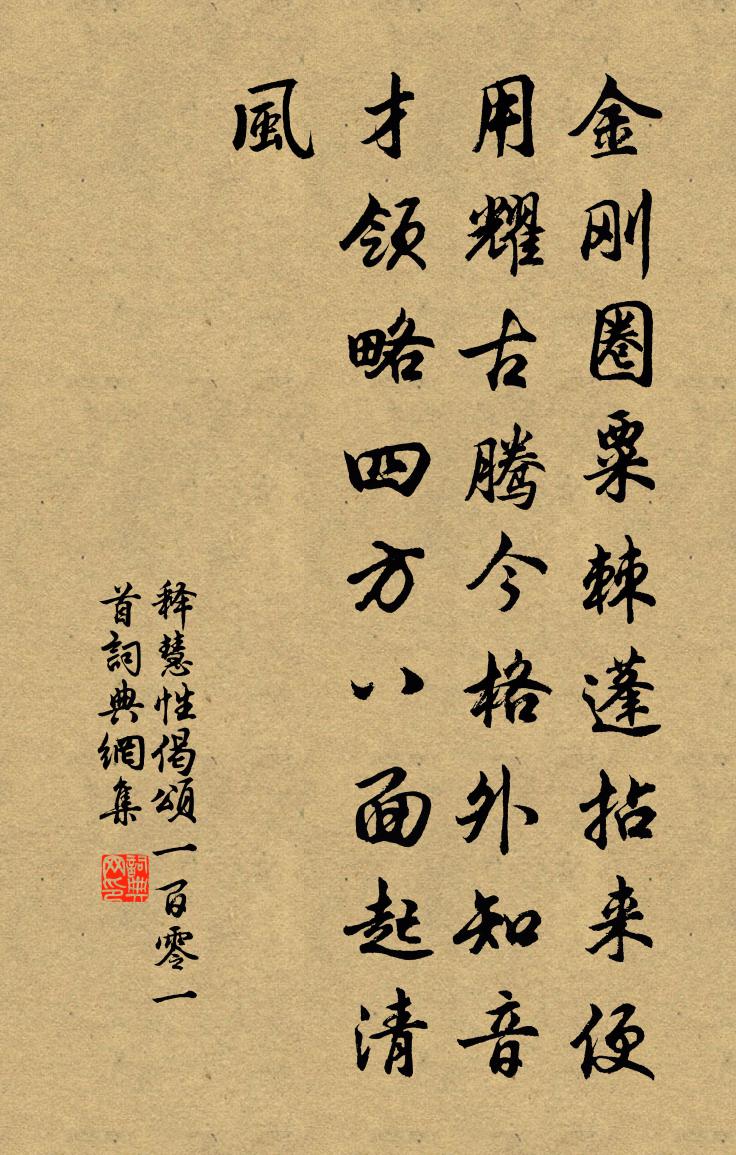 金刚圈粟棘蓬拈来便
用耀古腾今格外知音
才领略四方八面起清
風
释慧性偈頌一百零一
首詞典網集
詞典
网印